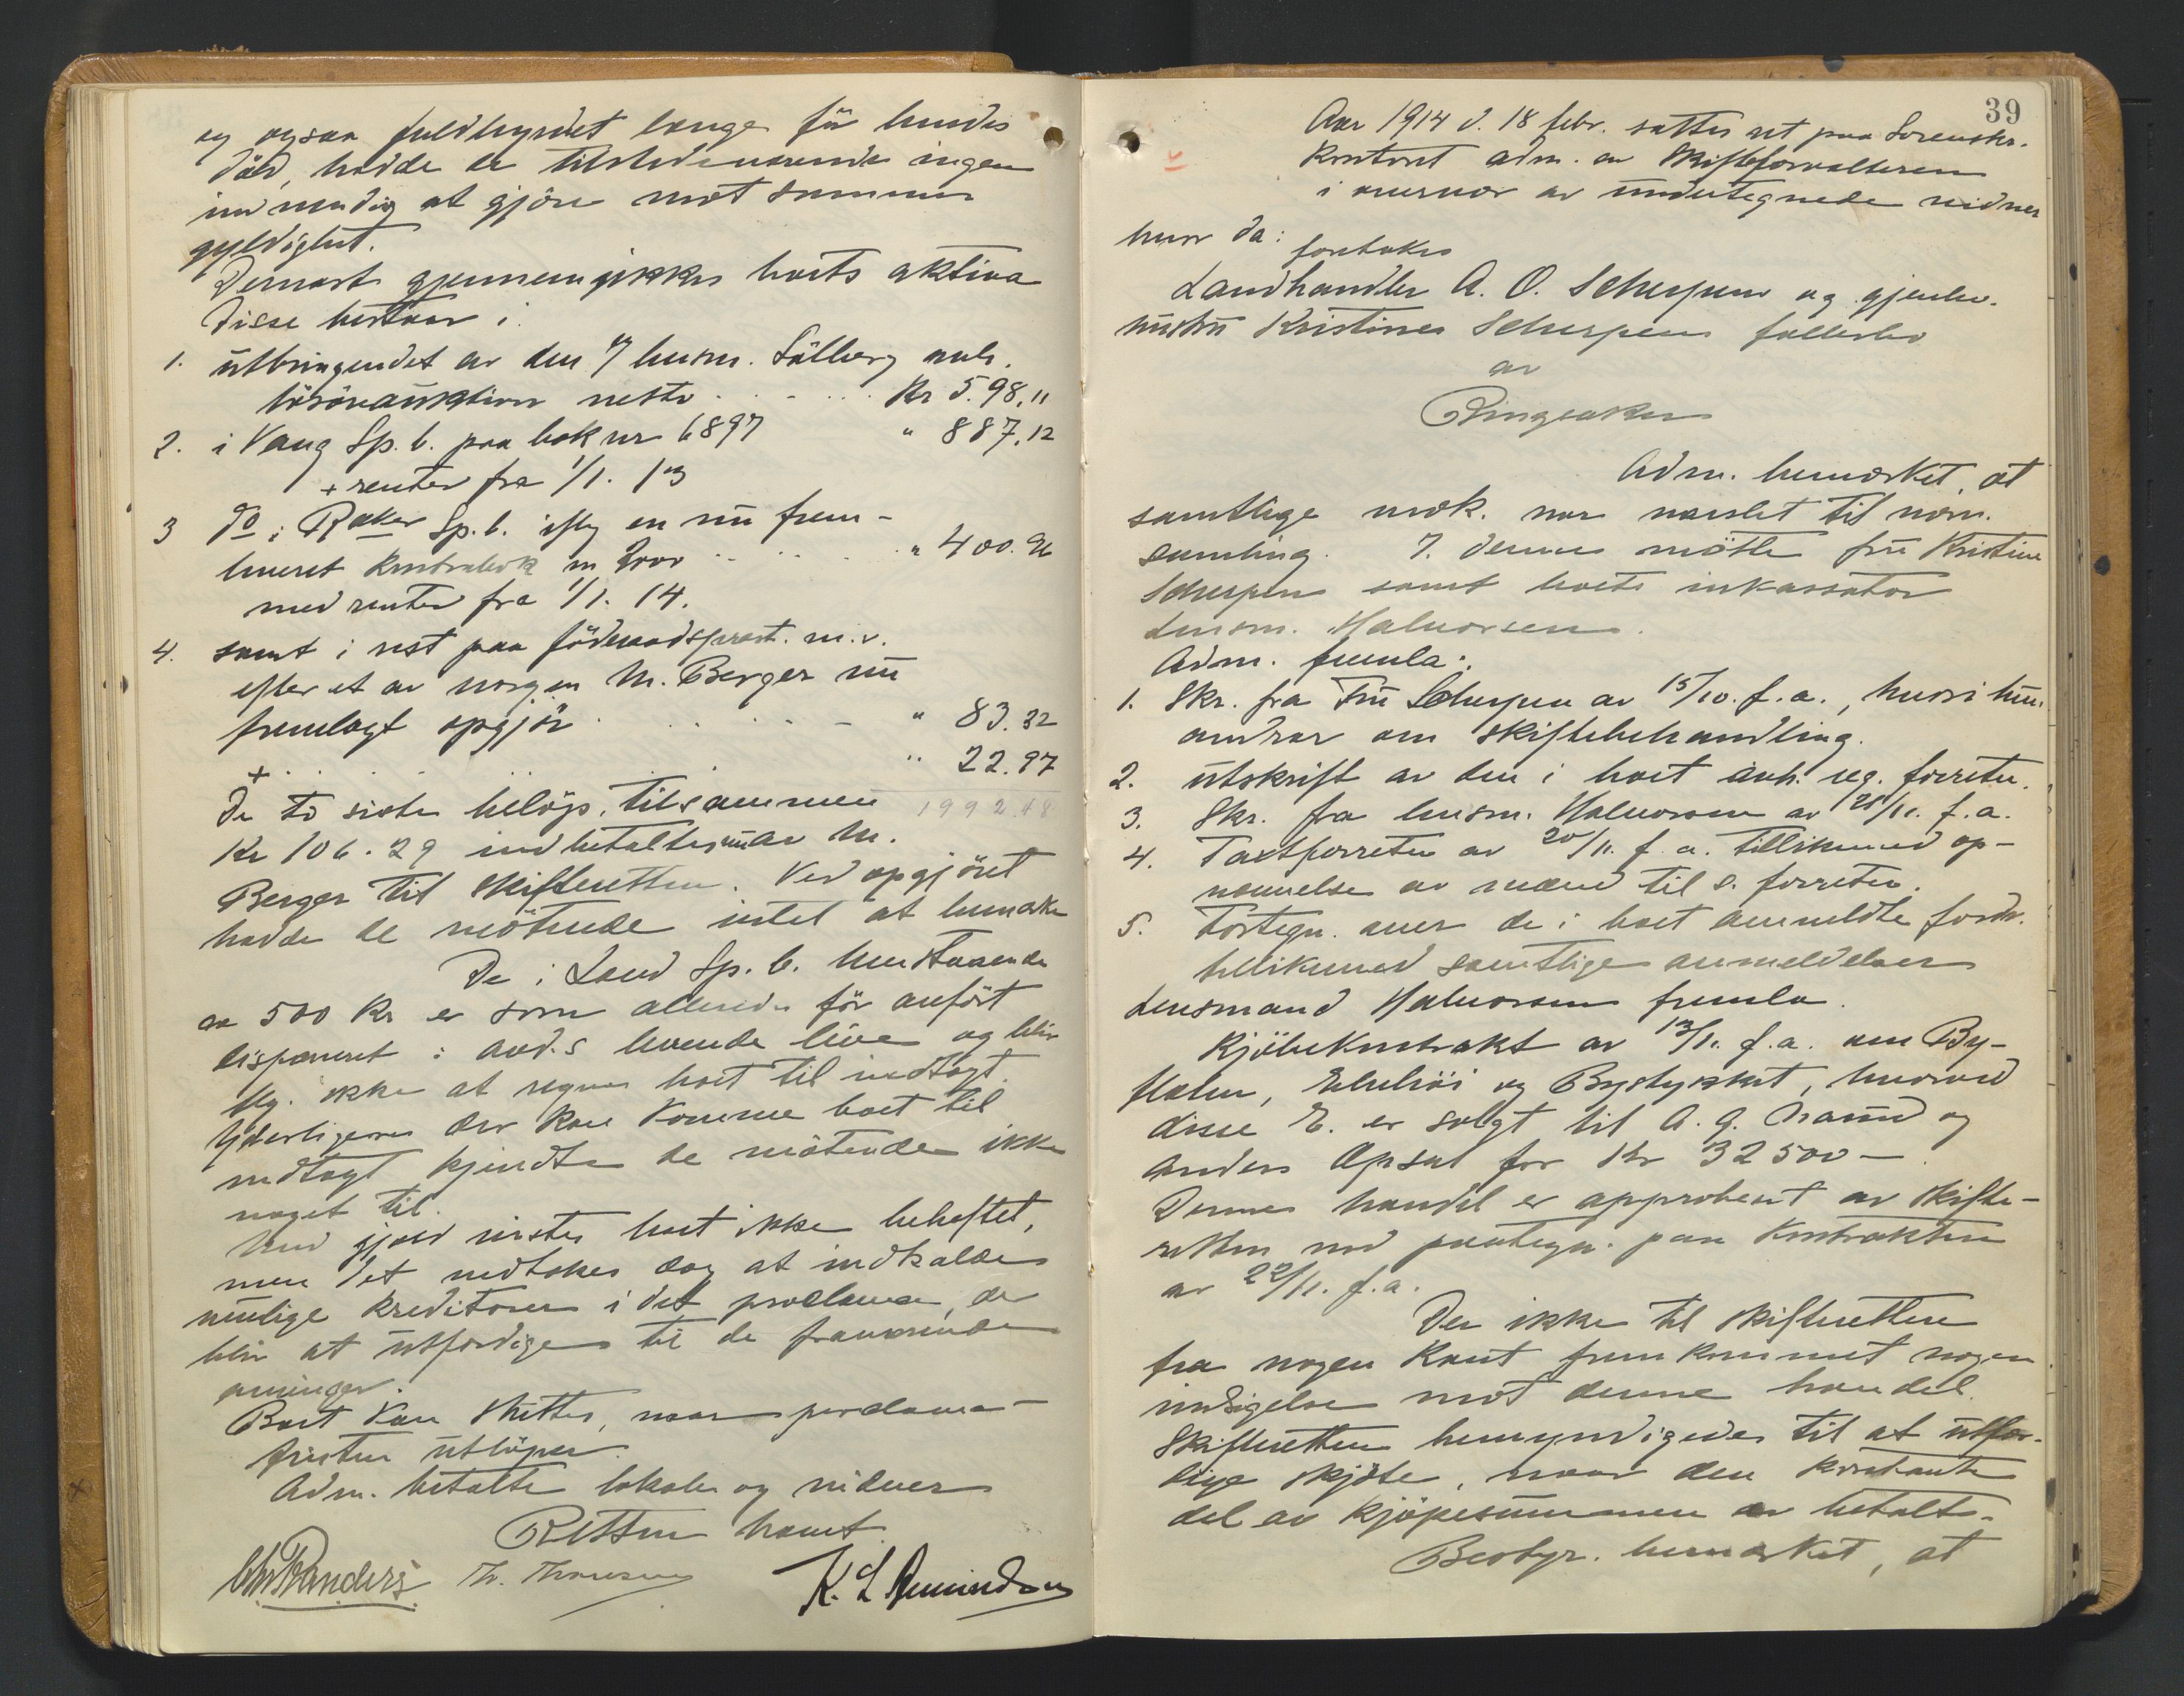 og ogsaa fuldbyrdet længe før hendes
død, hadde de tilstedeværende ingen
indvending at gjøre mot sammes
gyldighet.
Dernæst gjennemgikkes boets aktiva
Disse bestaar i
1. utbringendet av den av lensm. Sølberg avh.
løsøreauktion netto . . . . Kr 598,11
2. i Vang Sp.b. paa bok nr 6897 " 887,12
+ renter fra 1/1. 13
3 do i Romedal Sp.b. iflg en nu frem-
leveret kontrabok nr . . . . " 400.96
med renter fra 1/1. 14.
4. samt i rest paa føderaadsprest. m.v.
efter et av M. Berger nu
fremlagt opgjør . . . . " 83.32
+ . . . " 22.97
1992.48
De to siste beløp, tilsammen
Kr 106.29 indbetaltes nu av M.
Berger til skifteretten. Ved opgjøret
hadde de møtende intet at bemærke
De i Land Sp.b. henstaaende
ca 500 Kr er som allerede før anført
disponeret i avd.s levende live og blir
flg. ikke at regne boet til indtægt.
Yderligere der kan komme boet til
indtægt kjendte de møtende ikke
noget til.
Med gjæld vistes boet ikke beheftet,
men det vedtokes dog at indkalde
mulige kreditorer i det proclama, der
blir at utfærdige til de fraværende
arvinger.
Boet kan sluttes, naar proclama-
fristen utløper.
Adm. betalte lokale og vidner
Retten hævet
Chr Randers Th. Thoresen K. L. Amundsen
39
Aar 1914 d. 18 febr. sattes ret paa Sorenskr.
kontoret adm. av Skifteforvalteren
i overvær av undertegnede vidner
hvor da:
foretokes
Landhandler A. O. Scherpen og gjenlev.
hustru Kristines Scherpens fællesbo
av
Ringsaker
Adm. bemærket, at
samtlige vedk. var varslet til nærv.
samling. I denne møtte fru Kristine
Scherpen samt boets inkassator
Lensm. Halvorsen.
Adm. fremla:
1. Skr. fra Fru Scherpen av 15/10. f.a., hvori hun
andrar om skiftebehandling.
2. utskrift av den i boet avh. reg. forretn.
3. Skr. fra lensm. Halvorsen av 28/11. f.a.
4. Taxtforretn av 20/11. f.a. tillikemed op-
nævnelse av mænd til s. forretn.
5. Fortegn. over de i boet anmeldte fordr.
tillikemed samtlige anmeldelser
Lensmand Halvorsen fremla
Kjøbekontrakt av 13/11. f.a. om By-
flaten, og Bystykket, hvorved
disse E. er solgt til A. G. og
Anders Opsal for Kr 32500 -
Denne handel er approbert av Skifte-
retten ved paategn. paa Kontrakten
av 22/11. f.a.
Der ikke til skifteretten
fra nogen kant fremkommet nogen
indsigelse mot denne handel.
Skifteretten bemyndigedes til at utfær-
dige skjøte, naar den kontante
del av kjøpesummen er betalt.
Bestyr. bemærket, at